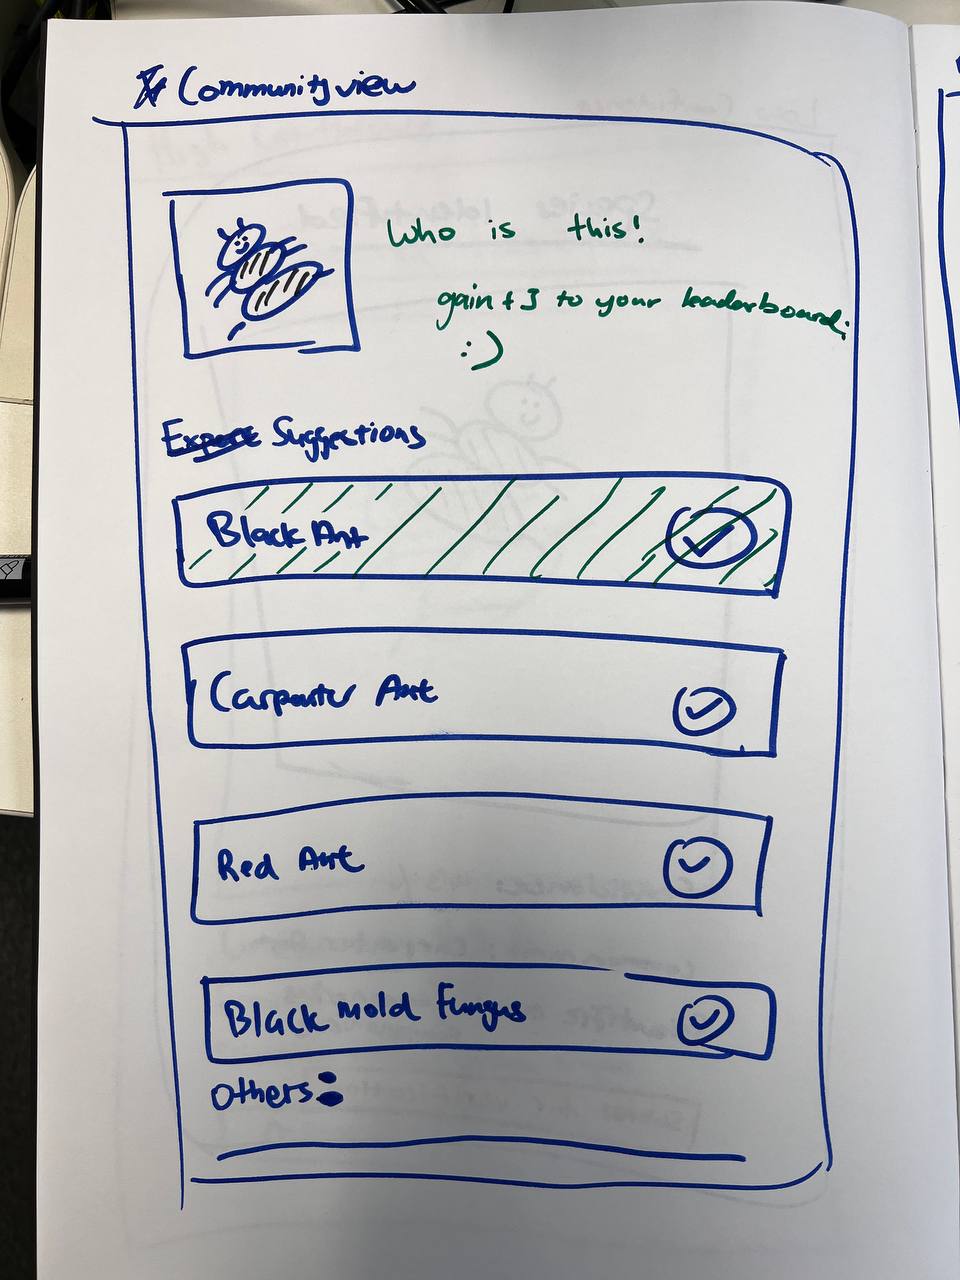 Community view
Who is this!
gain +3 to your leaderboard.
:)
Expert Suggestions
Black Ant
Carpenter Ant
Red Ant
Black mold Fungus
Others: